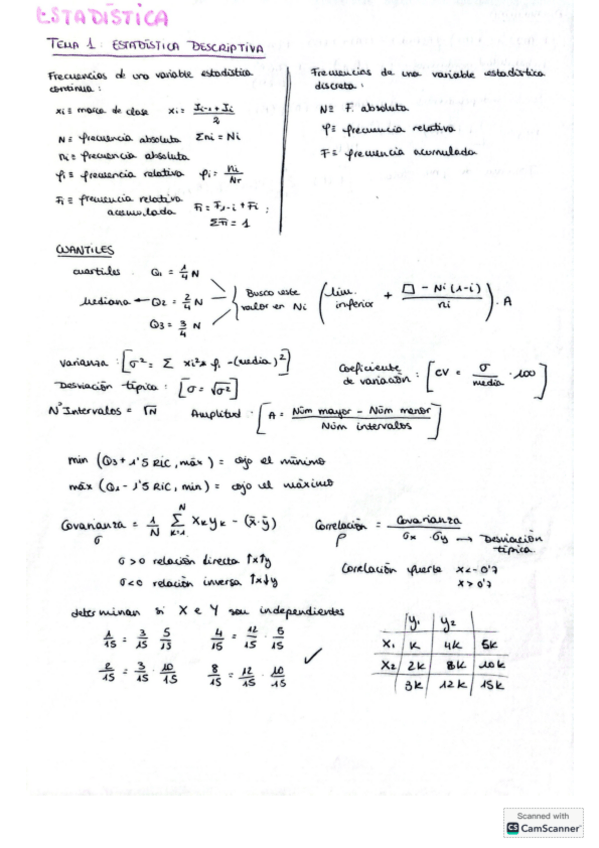 ESTADÍSTICA
TEMA 1: ESTADÍSTICA DESCRIPTIVA
Frecuencias de una variable estadística
continua:
xi ≡ marca de clase xi = Ii-1 + Ii / 2
N ≡ frecuencia absoluta Σni = Ni
ni ≡ frecuencia absoluta
fi ≡ frecuencia relativa fi = ni / Nr
Fi ≡ frecuencia relativa
acumulada Fi = F1-i + Fi ;
ΣFi = 1
Frecuencias de una variable estadística
discreta:
N ≡ F. absoluta
f ≡ frecuencia relativa
F ≡ frecuencia acumulada
CUANTILES
cuartiles Q1 = 1/4 N
Mediana ← Q2 = 2/4 N
Q3 = 3/4 N
Busco este
valor en Ni
( lím. inferior + □ - Ni (1-i) / ni ) · A
Varianza: [σ² = Σ xi² · fi - (media)²]
Desviación típica: [σ = √σ²]
Coeficiente
de variación: [CV = σ / media · 100]
Nº Intervalos = √N Amplitud: [A = Núm mayor - Núm menor / Núm intervalos]
mín (Q3 + 1'5 RIC, máx) = cojo el mínimo
máx (Q1 - 1'5 RIC, mín) = cojo el máximo
Covarianza = 1/N Σ XkYk - (x̄·ȳ)
N
k=1
σ
Correlación = Covarianza / σx · σy → Desviación
típica
ρ
σ > 0 relación directa ↑x↑y
σ < 0 relación inversa ↑x↓y
Correlación fuerte x < -0'7
x > 0'7
determinan si X e Y son independientes
1/15 = 3/15 · 5/15 4/15 = 12/15 · 5/15
2/15 = 3/15 · 10/15 8/15 = 12/15 · 10/15 ✓
y1 y2
X1 K 4K 5K
X2 2K 8K 10K
3K 12K 15K
Scanned with
CS CamScanner